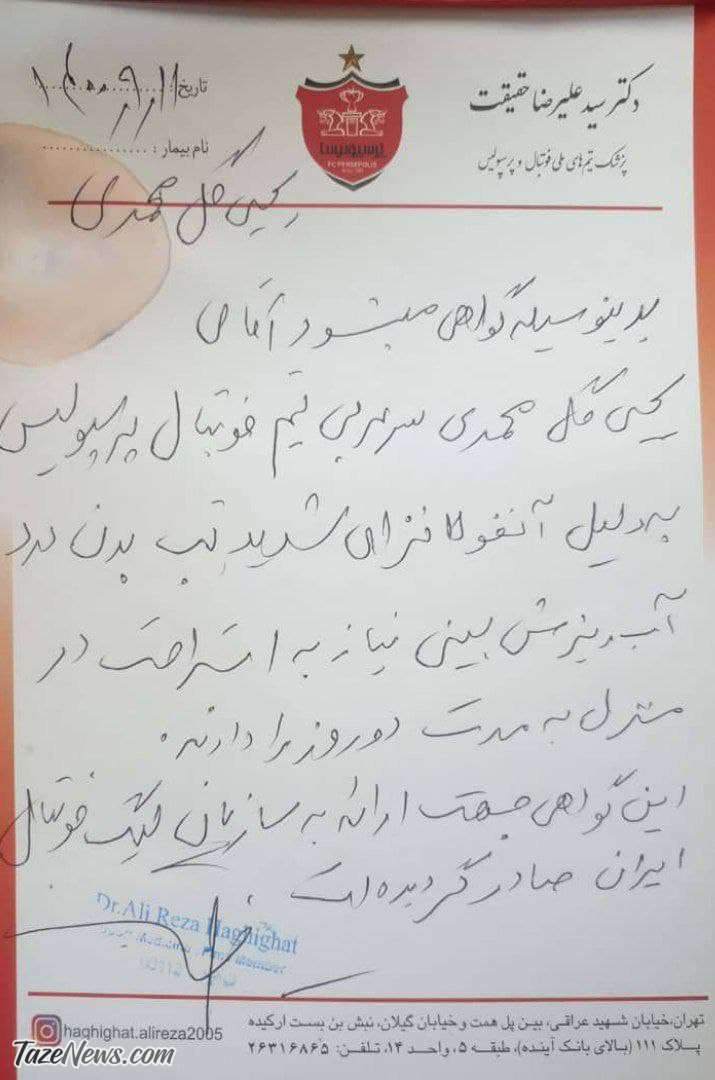 دکتر سید علیرضا حقیقت
پزشک تیم‌های ملی فوتبال و پرسپولیس
پرسپولیس
FC PERSEPOLIS
تاریخ: ۱۴۰۰/۹/۱۱
نام بیمار:
یحیی گل محمدی
بدینوسیله گواهی میشود آقای
یحیی گل محمدی سرمربی تیم فوتبال پرسپولیس
به دلیل آنفولانزای شدید تب بدن درد
آب ریزش بینی نیاز به استراحت در
منزل به مدت دو روز را دارند.
این گواهی جهت ارائه به سازمان لیگ فوتبال
ایران صادر گردیده است.
Dr.Ali Reza Haghighat
Member
تهران،خیابان شهید عراقی، بین پل همت و خیابان گیلان، نبش بن بست ارکیده
پلاک ۱۱۱ (بالای بانک آینده)، طبقه ۵، واحد ۱۴، تلفن: ۲۶۳۱۶۸۶۵
haghighat.alireza2005
TazeNews.com